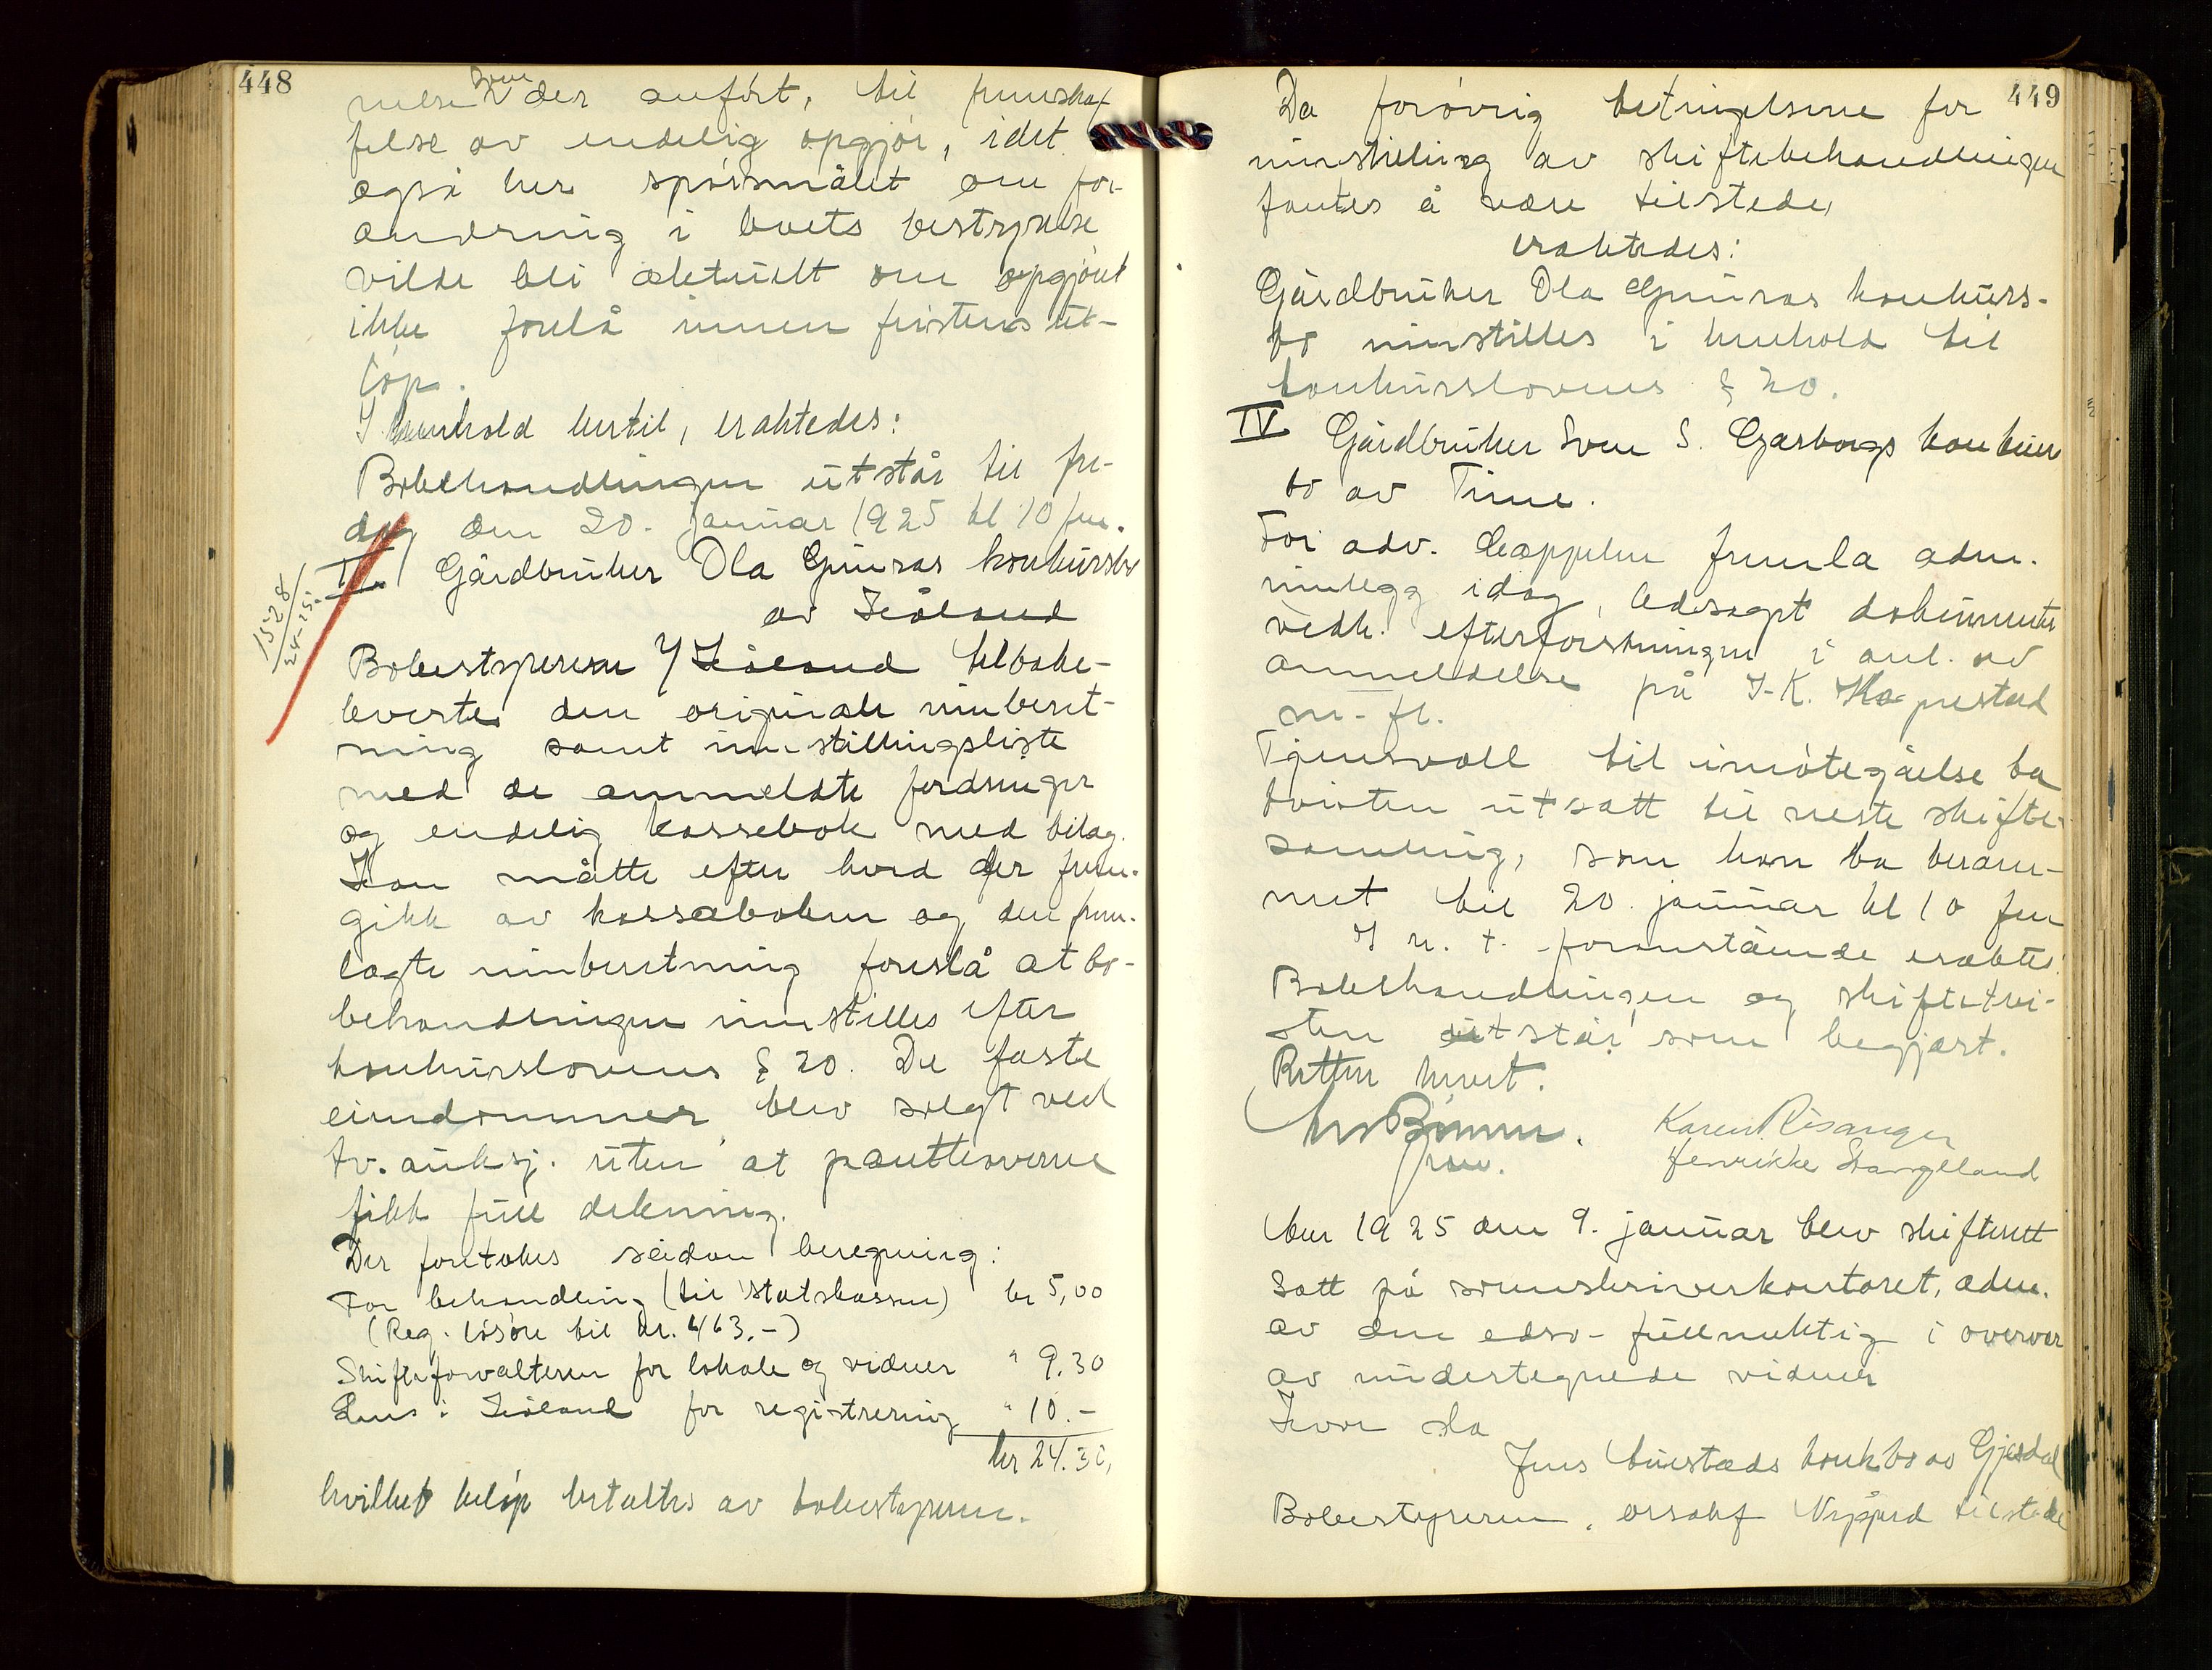 448
nelse som der anført, til fremskaf
felse av endelig opgjør, idet
også her spørsmålet om for-
andring i boets bestyrelse
vilde bli aktuelt om opgjøret
ikke forelå innen fristens ut-
løp.
I henhold hertil, eraktedes:
Bobehandlingen utstår til fre-
dag den 20. januar 1925 kl 10 fm.
1528/24-25.
III. Gårdbruker Ola konkursbo
av Håland
Bobestyreren Håland tilbake-
leverte den originale innberet-
ning samt innstillingsliste
med de anmeldte fordringer
og endelig kassebok med bilag.
Han måtte efter hvad der frem-
gikk av kasseboken og den frem-
lagte innberetning foreslå at bo-
behandlingen innstilles efter
konkurslovens § 20. De faste
eiendommer blev solgt ved
tv. auksj. uten at panthaverne
fikk full dekning.
Der foretokes sådan beregning:
For behandling (til statskassen) kr 5,00
(Reg. løsøre til kr. 463.-)
Skifteforvalteren for lokale og vidner " 9.30
Lens. i Håland for registrering " 10.-
kr 24.30,
hvilket beløp betaltes av bobestyreren.
449
Da forøvrig betingelsene for
innstilling av skiftebehandlingen
fantes å være tilstede,
eraktedes:
Gårdbruker Ola konkurs-
bo innstilles i henhold til
konkurslovens § 20.
IV Gårdbruker Sven S. Garborgs konkurs
bo av Time.
For adv. fremla adm.
innlegg idag, ledsaget dokumenter
vedk. efterforskningen i anl. av
anmeldelse på J. K.
m. fl.
Tjensvoll til imøtegåelse ba
tvisten utsatt til neste skifte-
samling, som han ba beram-
met til 20. januar kl 10 fm
I h. t. foranstående eraktes:
Bobehandlingen og skiftetvi-
sten utstår som begjært.
Retten hevet.
Karen Risanger
Henrikke Stangeland
År 1925 den 9. januar blev skifterett
satt på sorenskriverkontoret, adm.
av den edsv. fullmektig i overvær
av undertegnede vidner
Hvor da
Jens konkbo av Gjesdal
Bobestyreren, orsakf Nygård tilstede